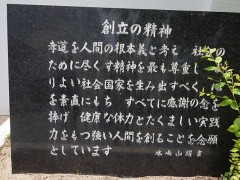 創立の精神
孝道を人間の根本義と考え 社会の
ために尽くす精神を最も尊重し
りよい社会国家を生み出すべく
を素直にもち すべてに感謝の念を
捧げ 健康な体力とたくましい実践
力をもつ強い人間を創ることを念願
としています
水嶋山耀書